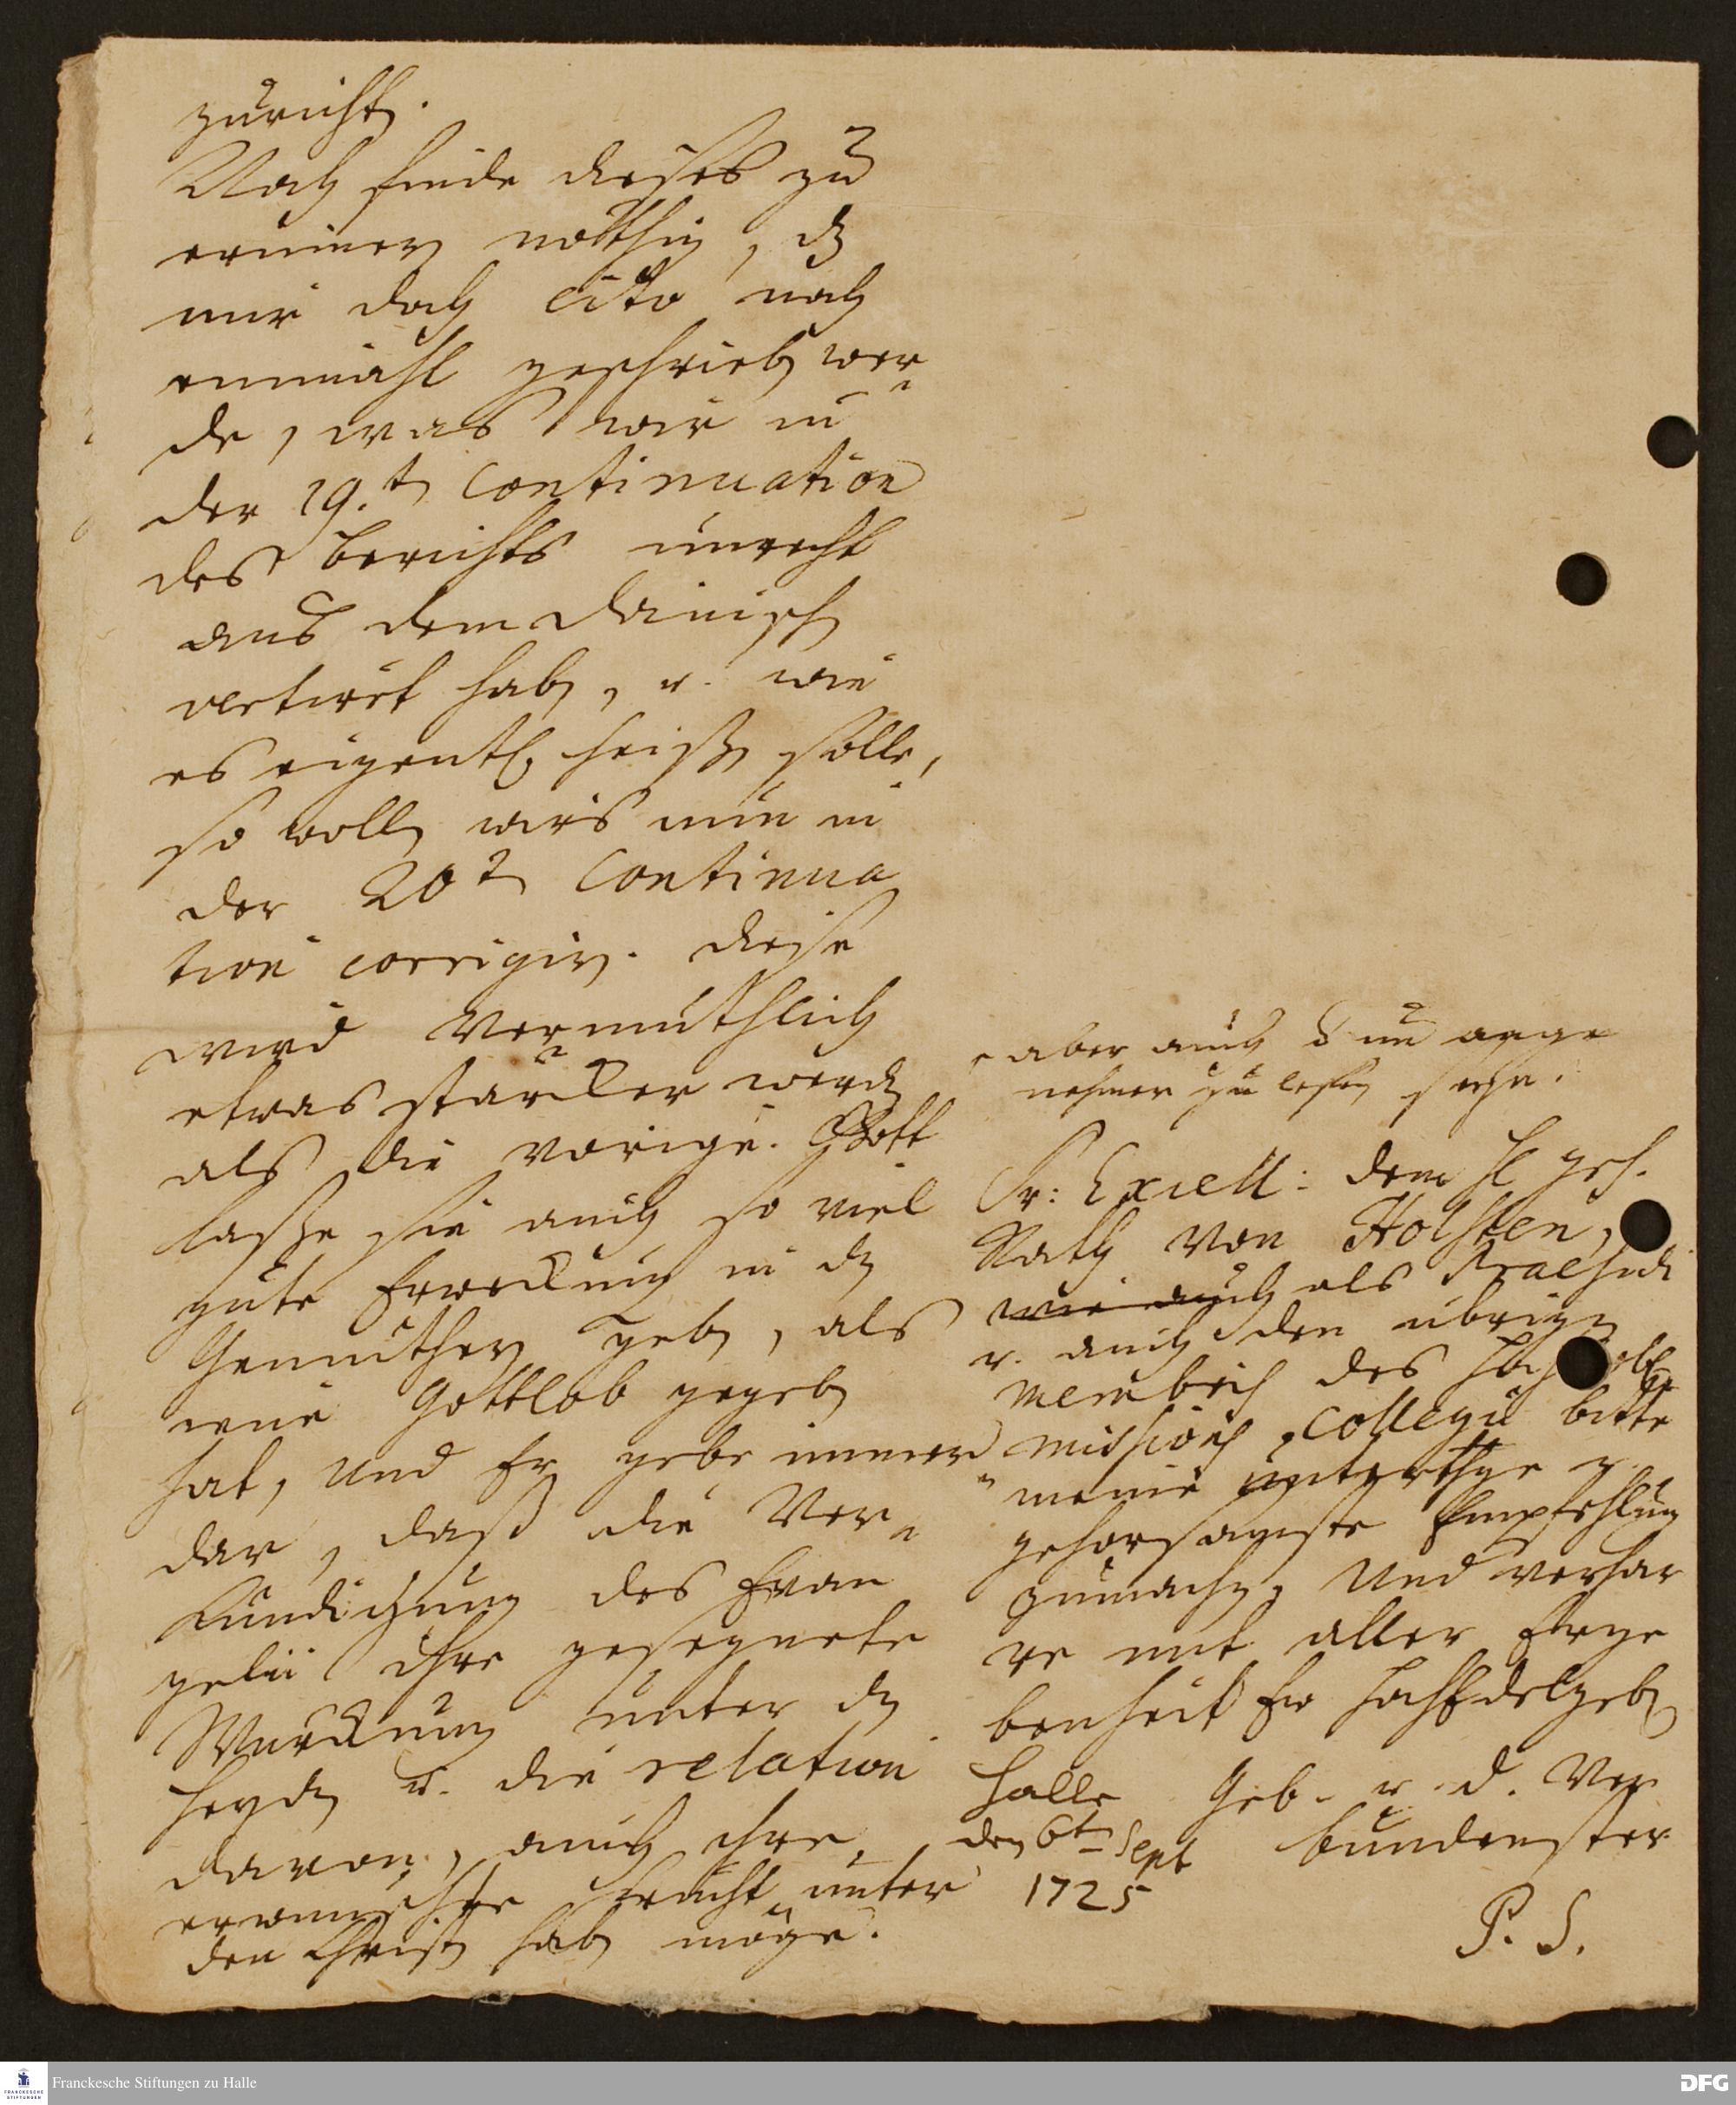 zuricht.
Noch finde dieses zu
erinnern nöthig, dz
mir doch cito noch
einmahl geschrieben wer
de, was wir in
der 19.ten Continuation
des berichts unrecht
aus dem Dänischen
vertiret haben, u. wie
es eigentl. heißen solle,
so wollen wirs nun in
der 20ten Continua
tion corrigiren. diese
wird Vermuthlich
etwas stärcker werden
als die vorige. Gott
laße sie auch so viel
gute Erweckung in den
Gemüthern geben, als
jene Gottlob gegeben
hat, und Er gebe immer
dar, daß die Ver
kündigung des Evan
gelii ihre gesegnete
Würckung unter den
Heyden u. die relation
davon, auch ihre
erwünschte Frucht unter
den Christen haben möge.
aber auch
nehmer zu lesen seyn.
Sr: Excell: dem H geh.
Rath von Holsten,
wie auch als Praesidi
u. auch den übrigen
membris des Hoch
missions Collegii bitte
meine unterthge u.
gehorsamste Empfehlung
zumachen, Und verhar
re mit aller Erge
benheit Ew HochEdelgeb
Halle Geb. u. d. Ver
den 6t Sept bundenster
1725
P. S.
Franckesche Stiftungen zu Halle
FRANCKESCHE
STIFTUNGEN
DFG